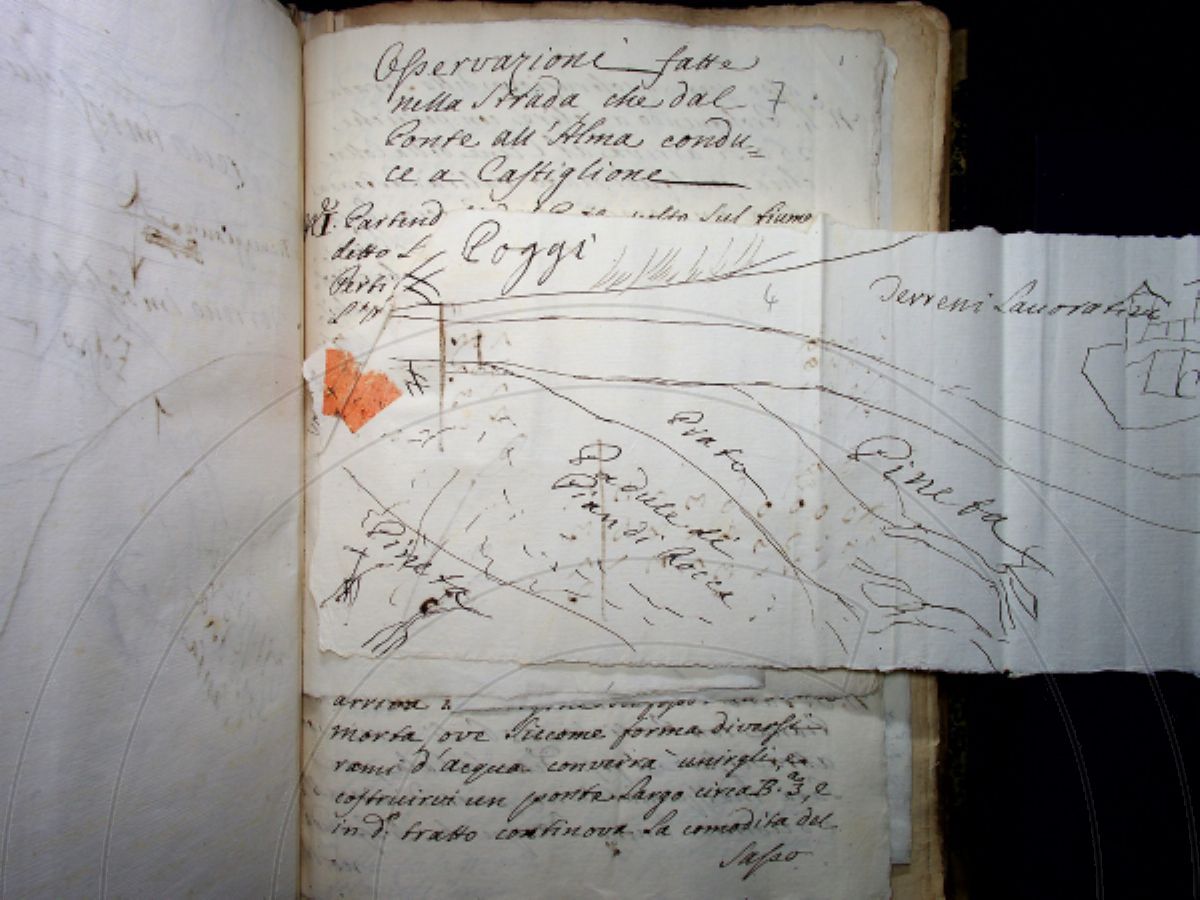 Osservazioni fatte
nella Strada che dal 7
Ponte all'Alma condu=
ce a Castiglione
Partend
detto L
Parti
Poggi
4
Terreni Lavorativi
Prato
Pineta
Padule di
Pian di Rocca
Pineta
arriva
morta ove siccome forma diversi
rami d'acqua converrà unirgli, e
costruirvi un ponte largo circa B.a 3, e
in d.o tratto continova la comodita del
Sasso